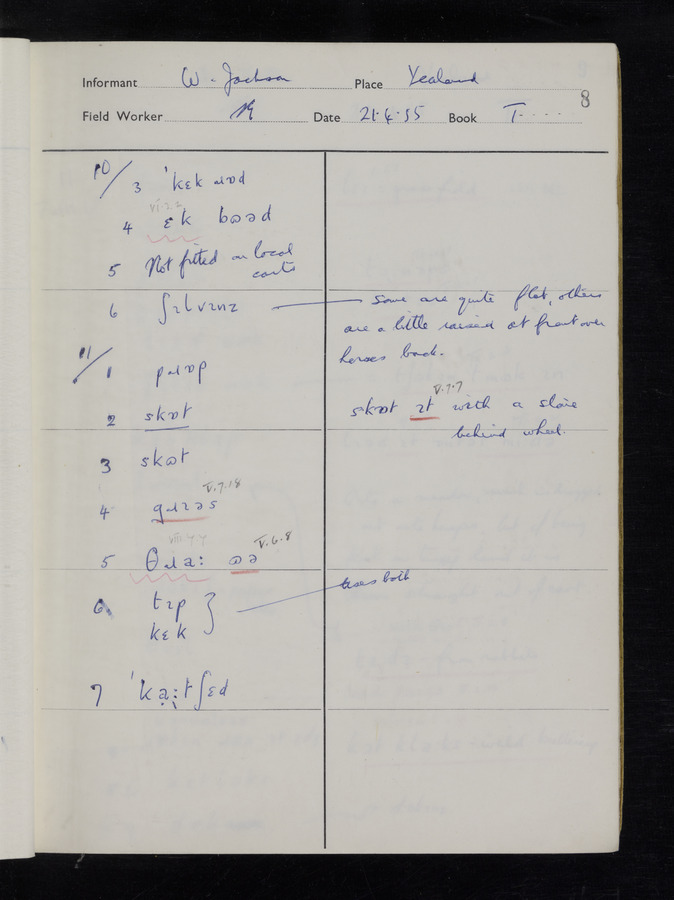 Informant W. Jackson Place Yealand
8
Field Worker Date 21.4.55 Book I....
10/ 3 ˈkɛk ɹɒd
VI.2.2
4 ɛk bɷəd
5 Not fitted on local
carts
6 ʃɪlvɪnz some are quite flat, others
are a little raised at front over
horses back.
11/ 1 pɹɒp
V.7.7
2 skɒt skɒt ɪt with a stone
behind wheel.
3 skɷt
V.7.18
4 gɹɪəs
VIII.4.4 V.6.8
5 θɹa: ɷə
6 tɪp uses both
kɛk
7 ˈka̤:tʃɛd